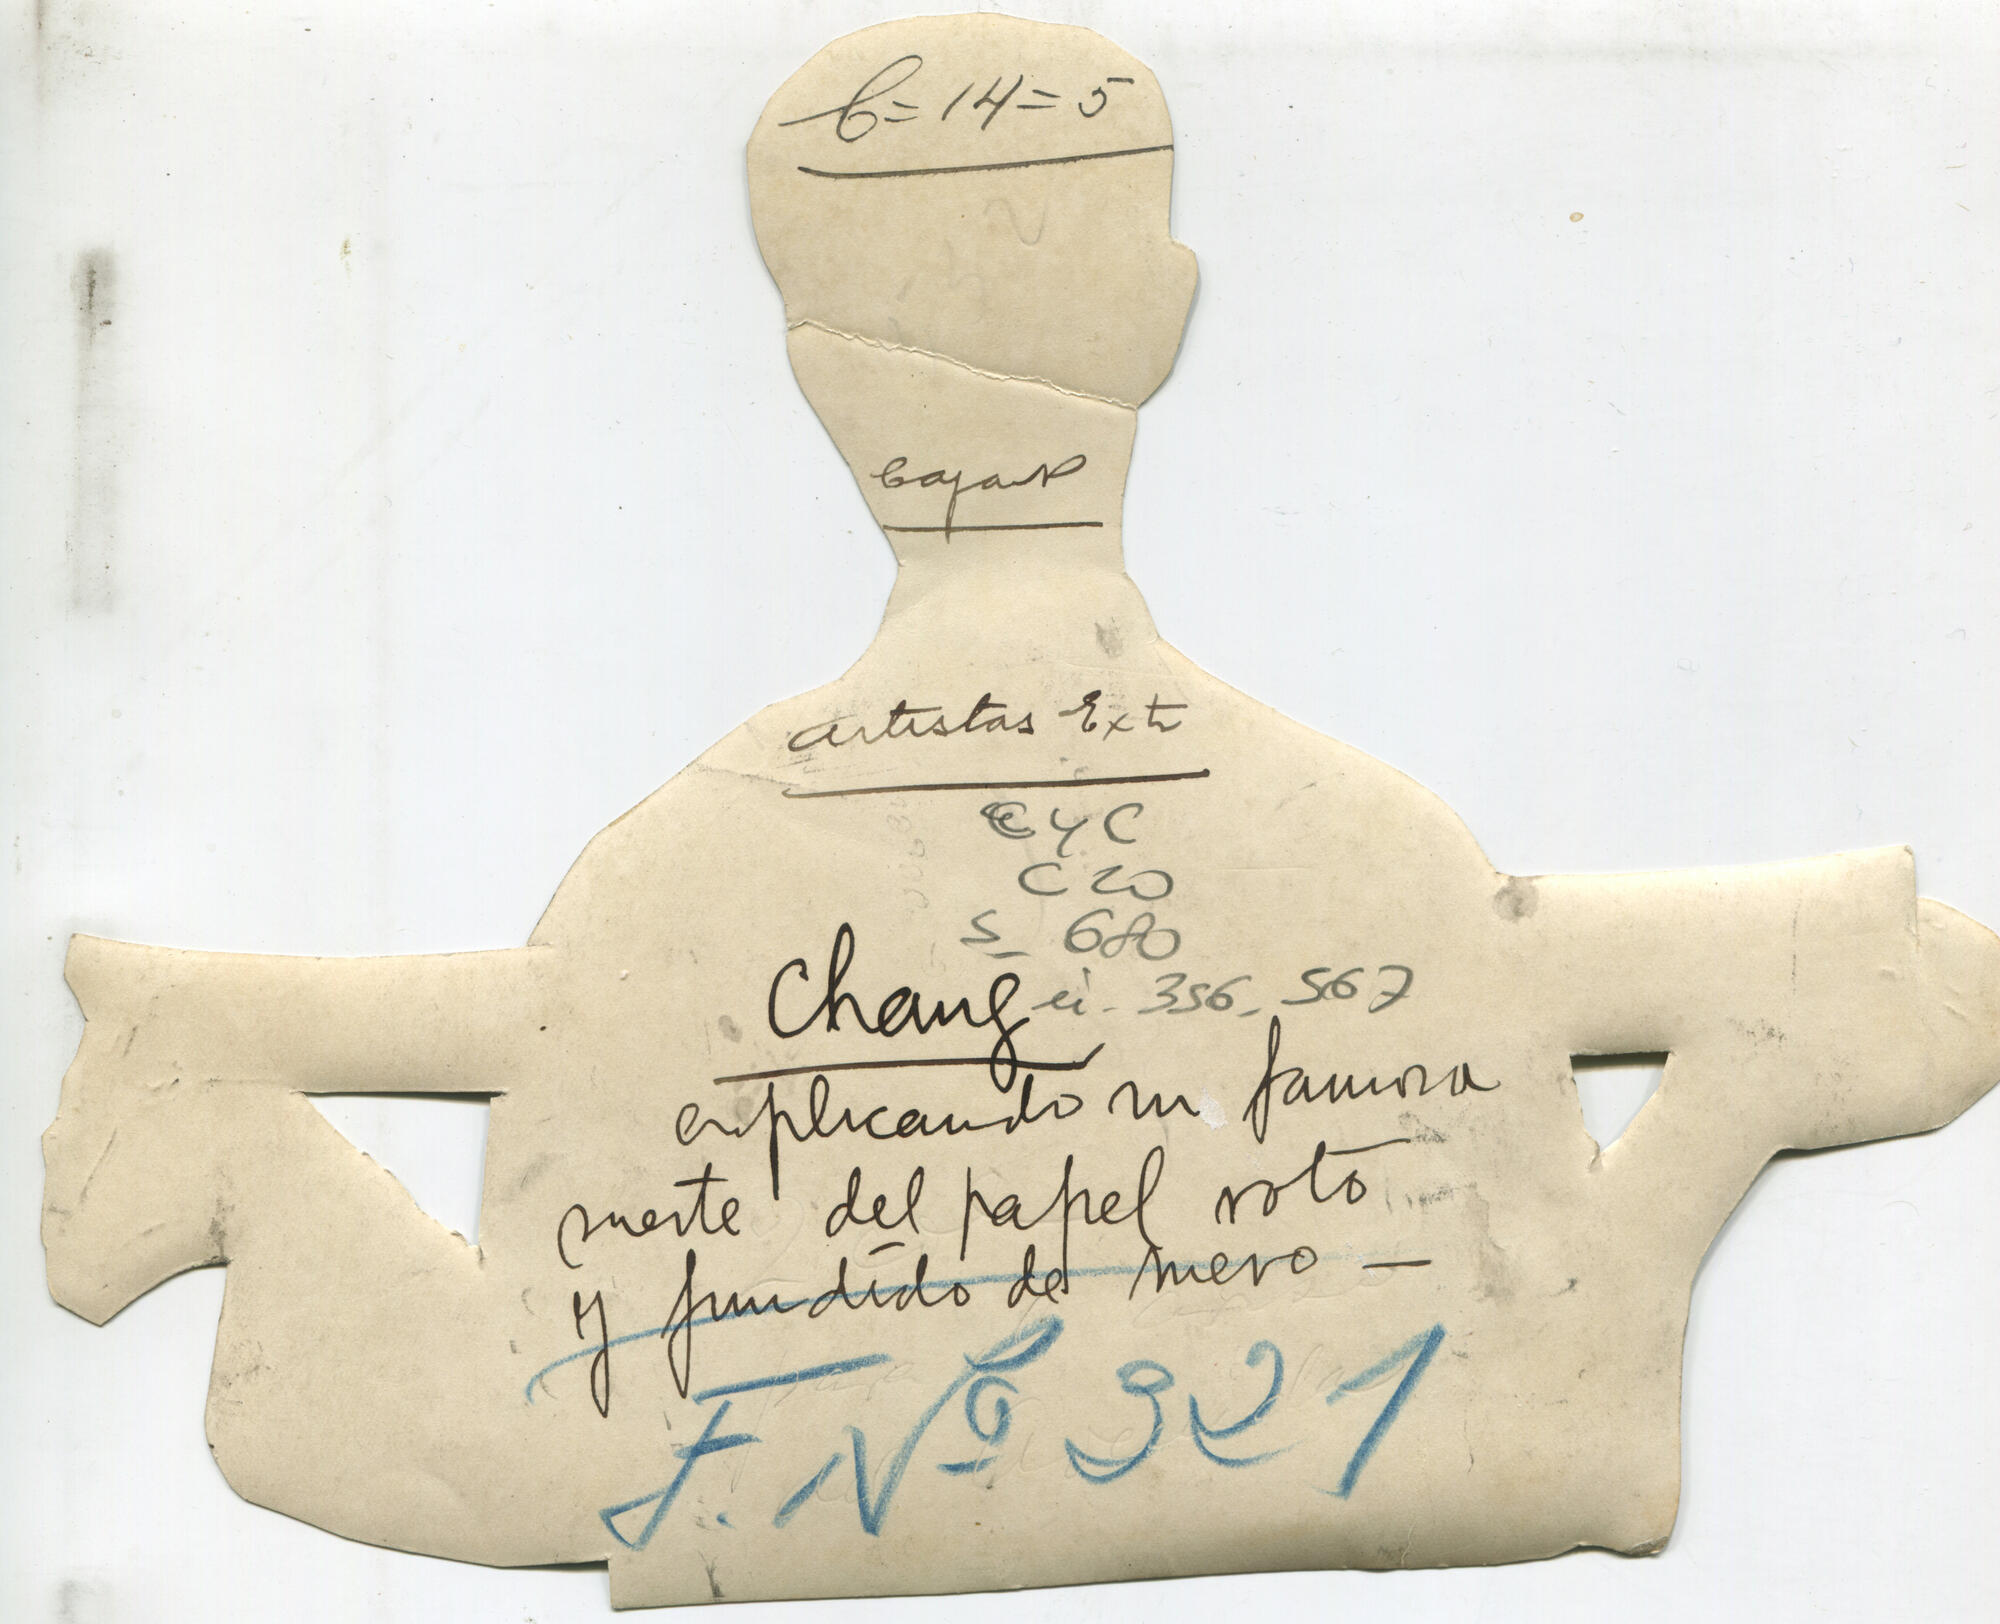 6=14=5
artistas Ext
CYC
C 20
S_ 680
Chang
ei - 356 - 567
explicando su famosa
suerte del papel roto
y fundido de nuevo —
F. Nº 321